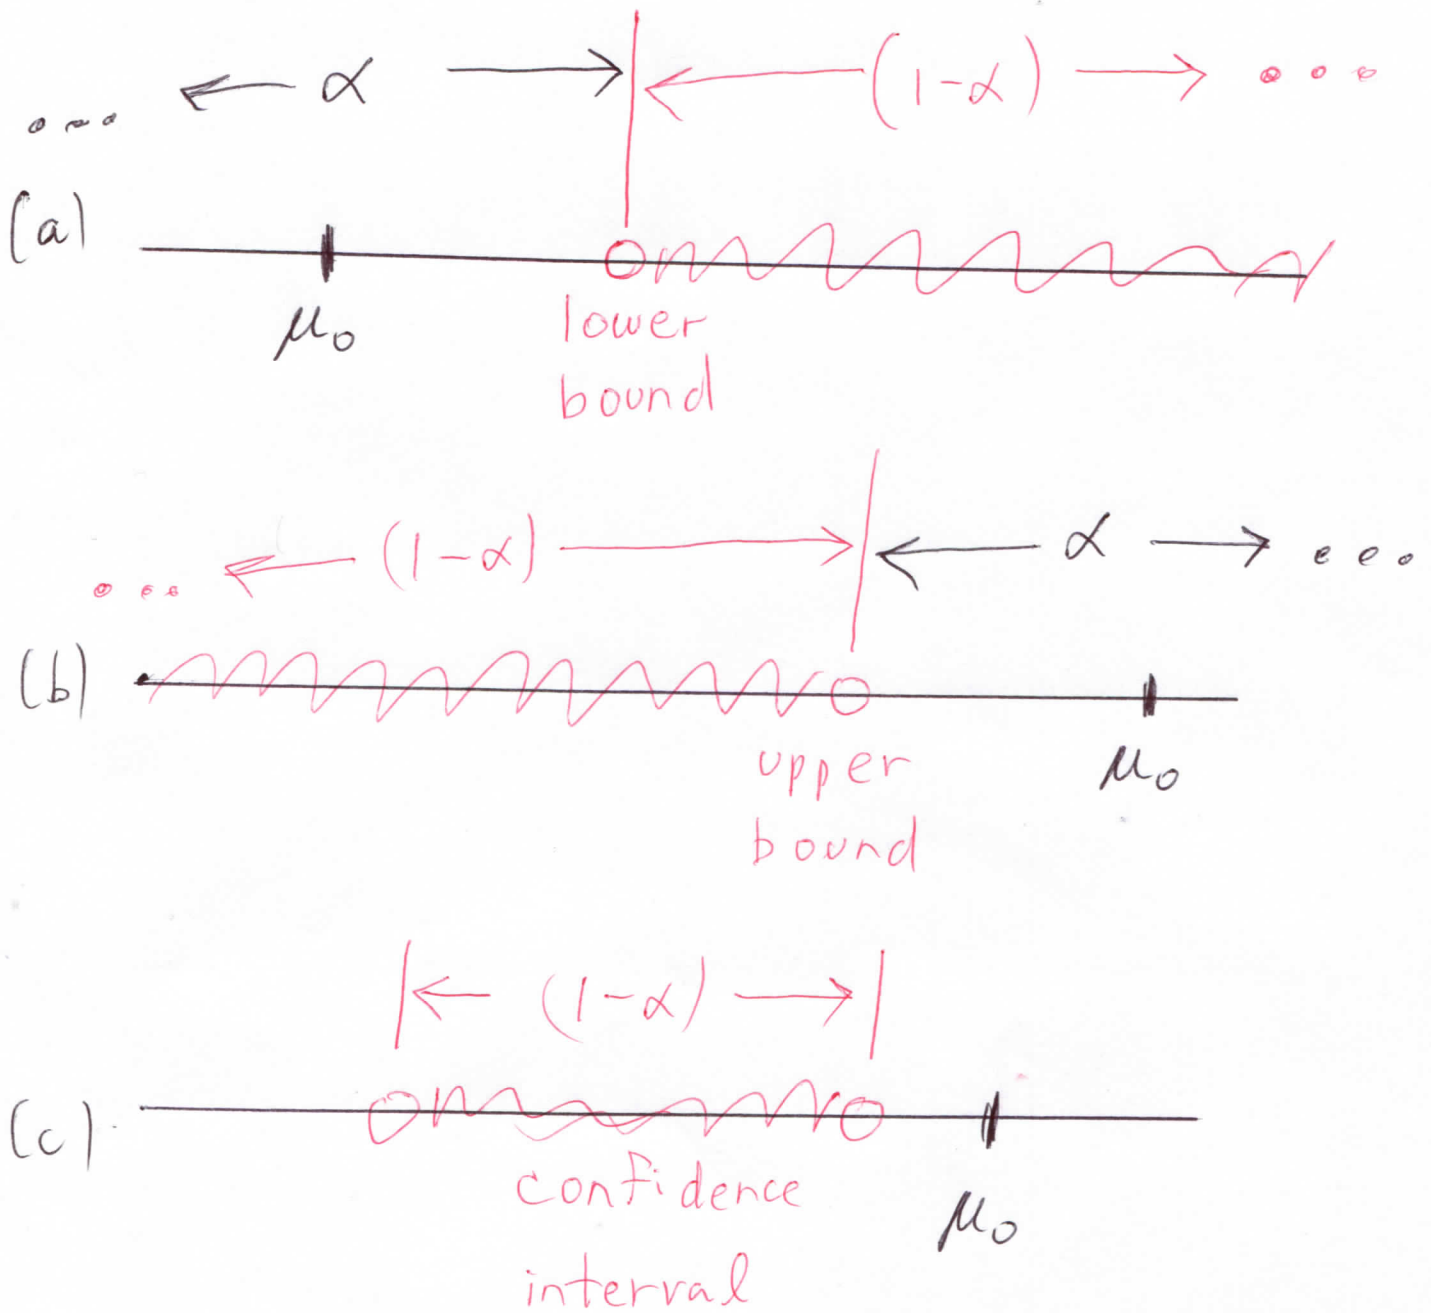 α (1-α)
(a)
μ₀
lower
bound
(1-α) α
(b)
upper
μ₀
bound
(1-α)
(c)
confidence
μ₀
interval